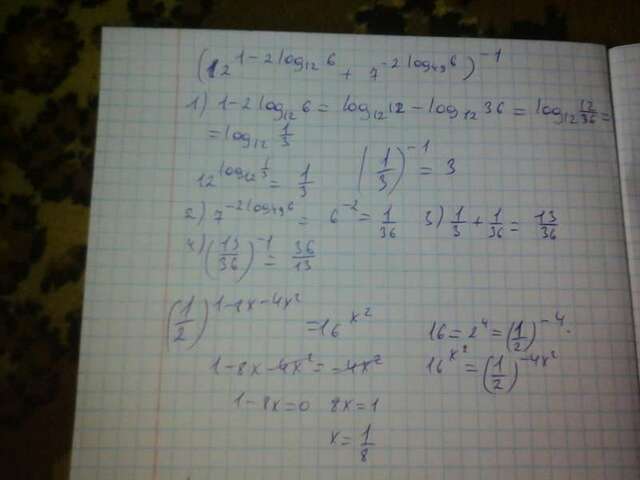 (12^{1-2log_{12}6} + 7^{-2log_{49}6})^{-1}
1) 1-2log_{12}6 = log_{12}12 - log_{12}36 = log_{12} 12/36 =
= log_{12} 1/3
12^{log_{12} 1/3} = 1/3 (1/3)^{-1} = 3
2) 7^{-2log_{49}6} = 6^{-2} = 1/36 3) 1/3 + 1/36 = 13/36
4) (13/36)^{-1} = 36/13
(1/2)^{1-8x-4x^2} = 16^{x^2} 16 = 2^4 = (1/2)^{-4}.
1-8x-4x^2 = -4x^2 16^{x^2} = (1/2)^{-4x^2}
1-8x=0 8x=1
x = 1/8